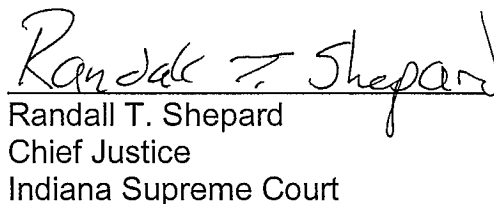 Randall T. Shepard
Randall T. Shepard
Chief Justice
Indiana Supreme Court